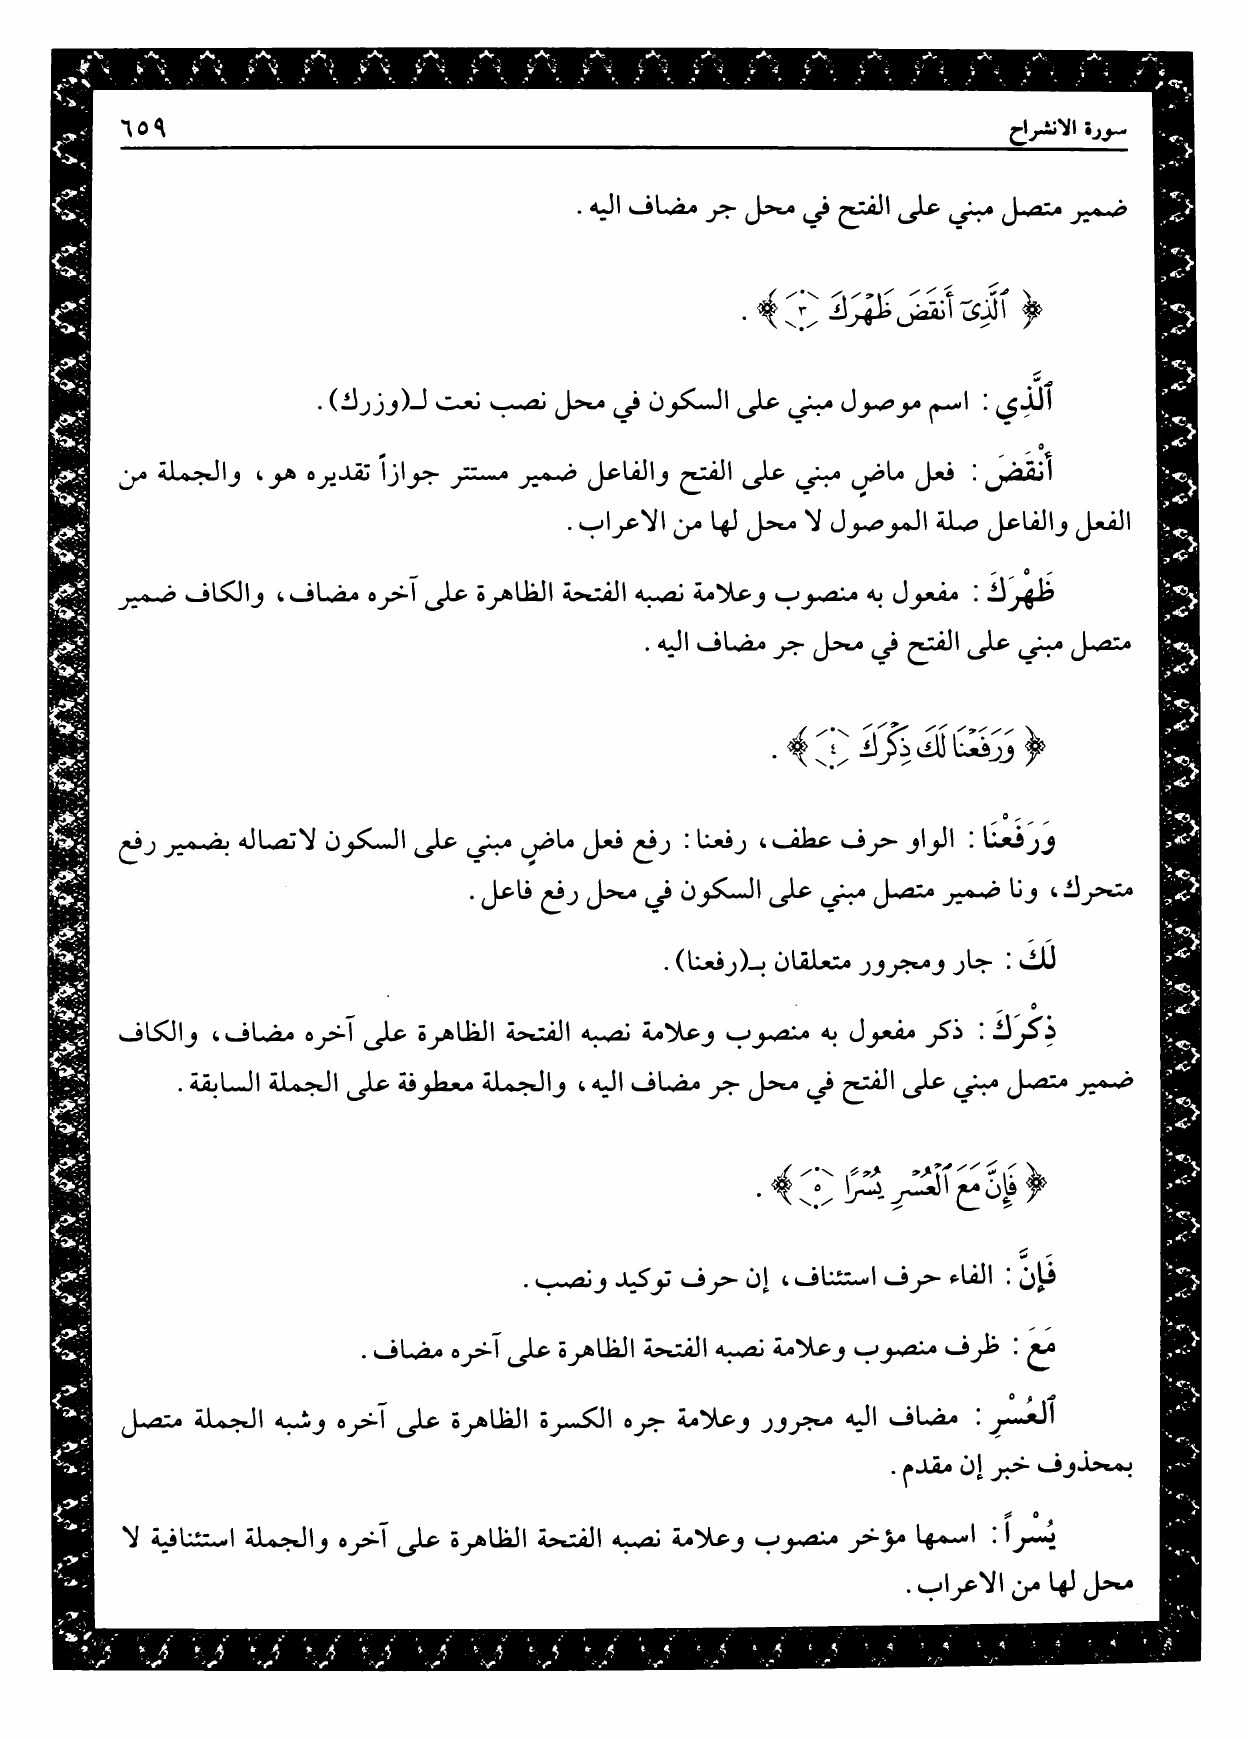 سورة الانشراح
٦٥٩
ضمير متصل مبني على الفتح في محل جر مضاف اليه .
﴿ ٱلَّذِىٓ أَنقَضَ ظَهْرَكَ ٣ ﴾ .
ٱلَّذِي : اسم موصول مبني على السكون في محل نصب نعت لـ(وزرك) .
أَنْقَضَ : فعل ماضٍ مبني على الفتح والفاعل ضمير مستتر جوازاً تقديره هو ، والجملة من
الفعل والفاعل صلة الموصول لا محل لها من الاعراب .
ظَهْرَكَ : مفعول به منصوب وعلامة نصبه الفتحة الظاهرة على آخره مضاف ، والكاف ضمير
متصل مبني على الفتح في محل جر مضاف اليه .
﴿ وَرَفَعْنَا لَكَ ذِكْرَكَ ٤ ﴾ .
وَرَفَعْنَا : الواو حرف عطف ، رفعنا : رفع فعل ماضٍ مبني على السكون لاتصاله بضمير رفع
متحرك ، ونا ضمير متصل مبني على السكون في محل رفع فاعل .
لَكَ : جار ومجرور متعلقان بـ(رفعنا) .
ذِكْرَكَ : ذكر مفعول به منصوب وعلامة نصبه الفتحة الظاهرة على آخره مضاف ، والكاف
ضمير متصل مبني على الفتح في محل جر مضاف اليه ، والجملة معطوفة على الجملة السابقة .
﴿ فَإِنَّ مَعَ ٱلْعُسْرِ يُسْرًا ٥ ﴾ .
فَإِنَّ : الفاء حرف استئناف ، إن حرف توكيد ونصب .
مَعَ : ظرف منصوب وعلامة نصبه الفتحة الظاهرة على آخره مضاف .
ٱلعُسْرِ : مضاف اليه مجرور وعلامة جره الكسرة الظاهرة على آخره وشبه الجملة متصل
بمحذوف خبر إن مقدم .
يُسْراً : اسمها مؤخر منصوب وعلامة نصبه الفتحة الظاهرة على آخره والجملة استئنافية لا
محل لها من الاعراب .